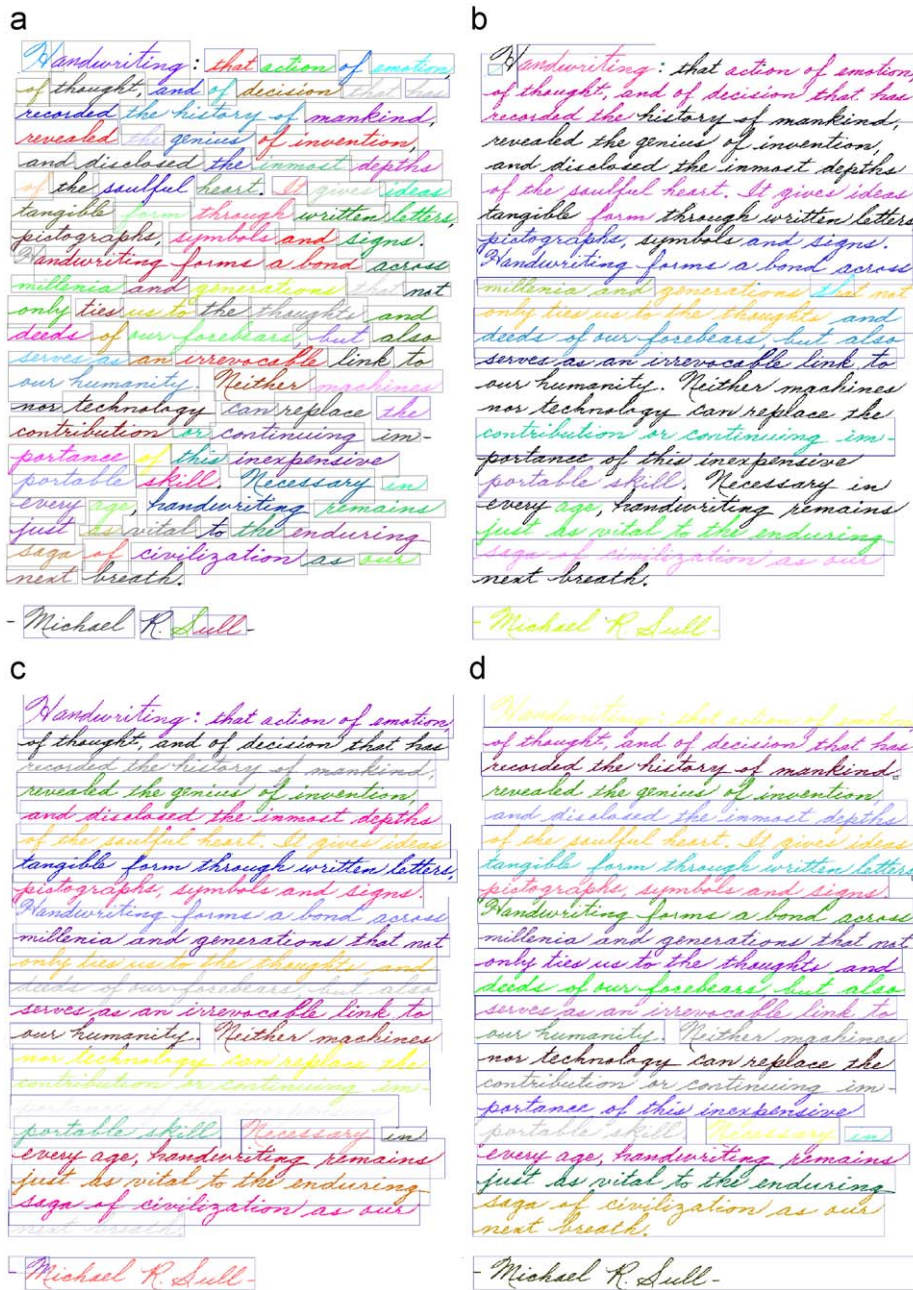 a
Handwriting: that action of emotion,
of thought, and of decision that has
recorded the history of mankind,
revealed the genius of invention,
and disclosed the inmost depths
of the soulful heart. It gives ideas
tangible form through written letters,
pictographs, symbols and signs.
Handwriting forms a bond across
millenia and generations that not
only ties us to the thoughts and
deeds of our forebears, but also
serves as an irrevocable link to
our humanity. Neither machines
nor technology can replace the
contribution or continuing im-
portance of this inexpensive
portable skill. Necessary in
every age, handwriting remains
just as vital to the enduring
saga of civilization as our
next breath.
- Michael R. Sull -
b
Handwriting: that action of emotion
of thought, and of decision that has
recorded the history of mankind,
revealed the genius of invention,
and disclosed the inmost depths
of the soulful heart. It gives ideas
tangible form through written letters
pictographs, symbols and signs.
Handwriting forms a bond across
millenia and generations that not
only ties us to the thoughts and
deeds of our forebears, but also
serves as an irrevocable link to
our humanity. Neither machines
nor technology can replace the
contribution or continuing im-
portance of this inexpensive
portable skill. Necessary in
every age, handwriting remains
just as vital to the enduring
saga of civilization as our
next breath.
- Michael R. Sull -
c
Handwriting: that action of emotion,
of thought, and of decision that has
recorded the history of mankind,
revealed the genius of invention,
and disclosed the inmost depths
of the soulful heart. It gives ideas
tangible form through written letters,
pictographs, symbols and signs.
Handwriting forms a bond across
millenia and generations that not
only ties us to the thoughts and
deeds of our forebears, but also
serves as an irrevocable link to
our humanity. Neither machines
nor technology can replace the
contribution or continuing im-
portance of this inexpensive
portable skill. Necessary in
every age, handwriting remains
just as vital to the enduring
saga of civilization as our
next breath.
- Michael R. Sull -
d
Handwriting: that action of emotion
of thought, and of decision that has
recorded the history of mankind,
revealed the genius of invention,
and disclosed the inmost depths
of the soulful heart. It gives ideas
tangible form through written letters
pictographs, symbols and signs.
Handwriting forms a bond across
millenia and generations that not
only ties us to the thoughts and
deeds of our forebears, but also
serves as an irrevocable link to
our humanity. Neither machines
nor technology can replace the
contribution or continuing im-
portance of this inexpensive
portable skill. Necessary in
every age, handwriting remains
just as vital to the enduring
saga of civilization as our
next breath.
- Michael R. Sull -